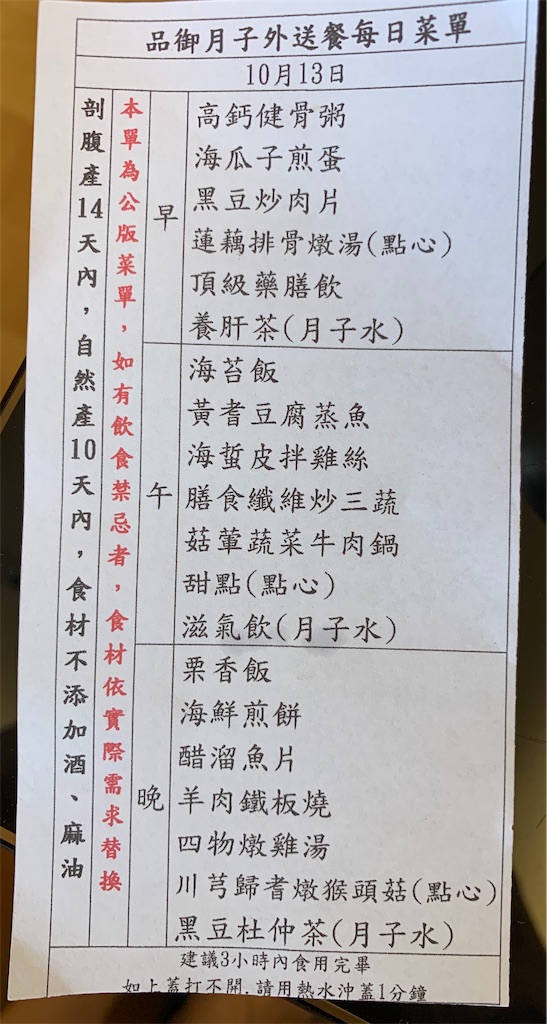 品御月子外送餐每日菜單
10月13日
剖腹產14天內，自然產10天內，食材不添加酒、麻油
本單為公版菜單，如有飲食禁忌者，食材依實際需求替換
早
高鈣健骨粥
海瓜子煎蛋
黑豆炒肉片
蓮藕排骨燉湯(點心)
頂級藥膳飲
養肝茶(月子水)
午
海苔飯
黃耆豆腐蒸魚
海蜇皮拌雞絲
膳食纖維炒三蔬
菇葷蔬菜牛肉鍋
甜點(點心)
滋氣飲(月子水)
晚
栗香飯
海鮮煎餅
醋溜魚片
羊肉鐵板燒
四物燉雞湯
川芎歸耆燉猴頭菇(點心)
黑豆杜仲茶(月子水)
建議3小時內食用完畢
如上蓋打不開,請用熱水沖蓋1分鐘